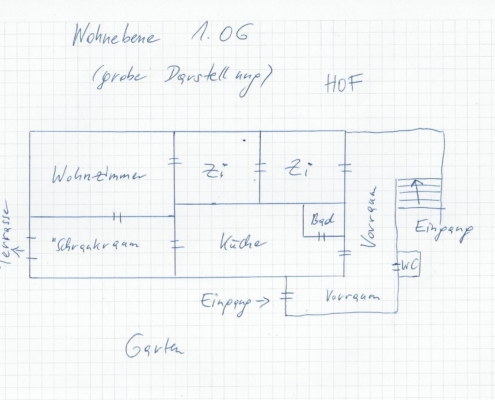 Wohnebene 1.OG
(grobe Darstellung)
HOF
Wohnzimmer
Zi
Zi
Terrasse
"Schrankraum
Küche
Bad
Vorraum
Eingang
WC
Eingang →
Vorraum
Garten